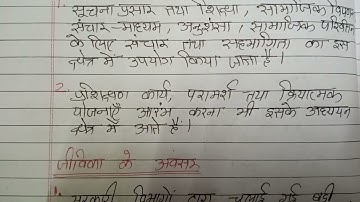 1. सूचना प्रसार तथा शिक्षा, सामाजिक विपणन
संचार-माध्यम, अनुशंसा, सामाजिक परिवर्तन
के लिए संचार तथा सहभागिता का इस
क्षेत्र में उपयोग किया जाता है।
2. प्रशिक्षण कार्य, परामर्श तथा क्रियात्मक
योजनाएँ आरंभ करना भी इसके अध्ययन
क्षेत्र में आते हैं।
जीविका के अवसर
1. सरकारी विभागों द्वारा चलाई गई बड़ी